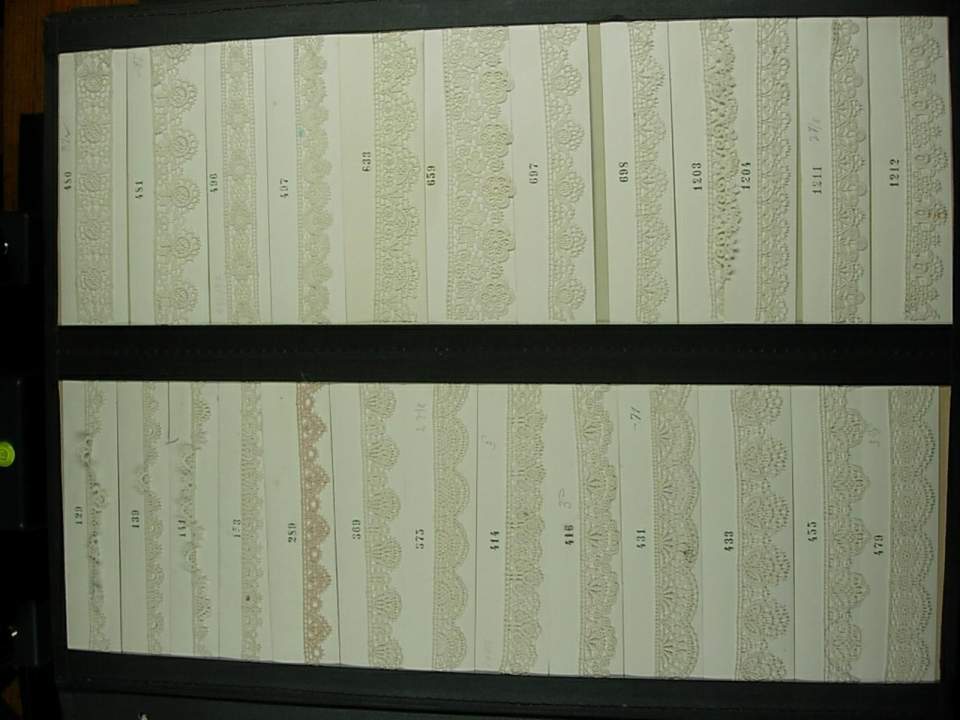 480
481
496
497
633
659
697
698
1203
1204
1211
1212
129
139
141
153
289
369
375
414
416
431
433
455
479